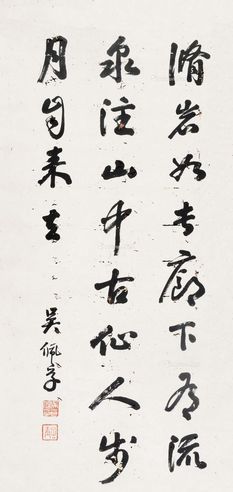 脩岩如長廊下有流
泉注山中古仙人步
月自来去
吳佩孚